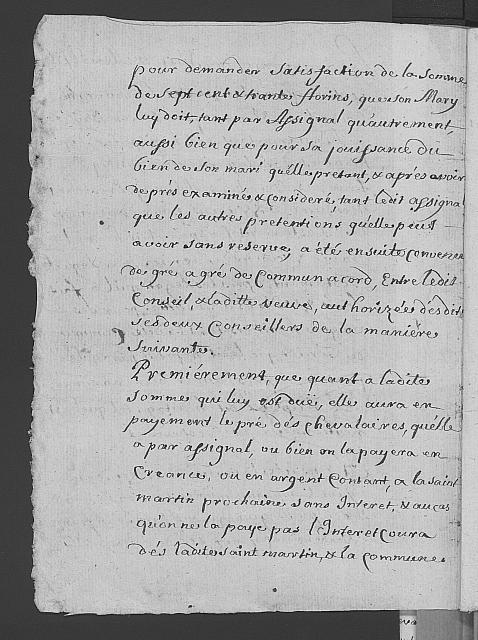 pour demander satisfaction de la somme
de sept cent & trante florins, que son Mary
luy doit, tant par Assignal qu'autrement,
aussi bien que pour sa jouissance du
bien de son mari qu'elle pretant, & après avoir
de prés examiné & consideré, tant ledit assignal
que les autres pretentions qu'elle peut
avoir sans reserve, a été ensuite convenu
de gré a gré de Commun acord, Entre ledit
Conseil, & laditte veuve, authorizée désdits
ses deux Conseillers de la manière
suivante.
Premiérement, que quant a ladite
somme qui luy est düe, elle aura en
payement le pré dés chevalaires, qu'elle
a par assignal, ou bien on la payera en
Creance, ou en argent Contant, a la saint
martin prochaine sans Interet, & au cas
qu'on ne la paye pas l'Interet coura
dés ladite saint martin, & la commune
va